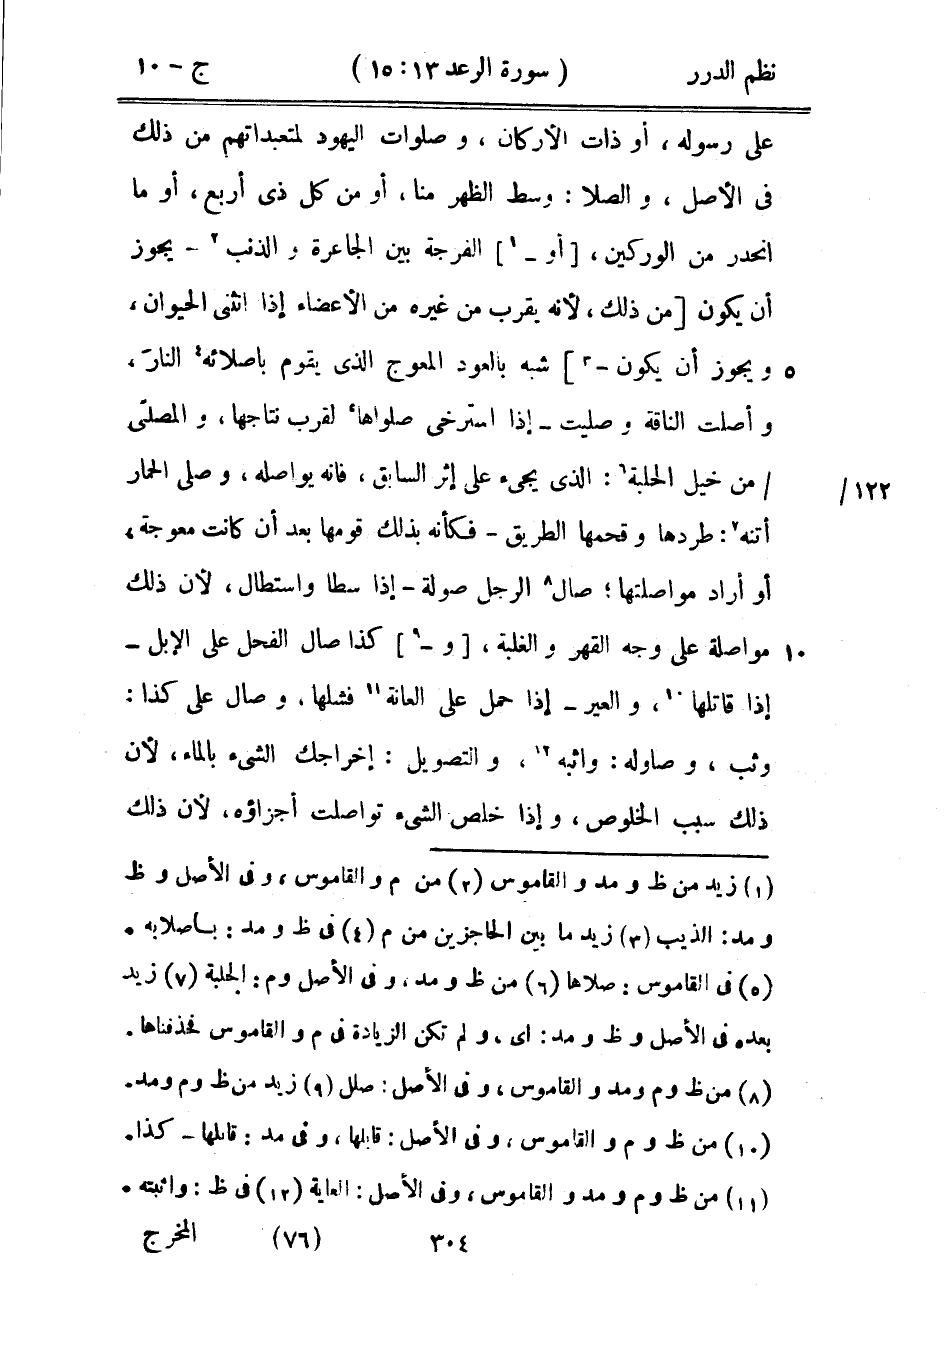 نظم الدرر ( سورة الرعد ١٣ : ١٥ ) ج – ١٠
على رسوله ، أو ذات الأركان ، و صلوات اليهود لمتعبداتهم من ذلك
فى الأصل ، و الصلا : وسط الظهر منا ، أو من كل ذى أربع ، أو ما
انحدر من الوركين ، [ أو – ١ ] الفرجة بين الجاعرة و الذنب ٢ – يجوز
أن يكون [ من ذلك ، لأنه يقرب من غيره من الأعضاء إذا انثنى الحيوان ،
٥ و يجوز أن يكون – ٣ ] شبه بالعود المعوج الذى يقوم باصلائه ٤ النار ،
و أصلت الناقة و صليت – إذا استرخى صلواها ٥ لقرب نتاجها ، و المصلّى
١٢٢/ / من خيل الحلبة ٦ : الذى يجىء على إثر السابق ، فانه يواصله ، و صلى الحمار
أتنه ٧ : طردها و قحمها الطريق – فكأنه بذلك قومها بعد أن كانت معوجة ،
أو أراد مواصلتها ؛ صال ٨ الرجل صولة – إذا سطا واستطال ، لأن ذلك
١٠ مواصلة على وجه القهر و الغلبة ، [ و – ٩ ] كذا صال الفحل على الإبل –
إذا قاتلها ١٠ ، و العير – إذا حمل على العانة ١١ فشلها . و صال على كذا :
وثب ، و صاوله : واثبه ١٢ ، و التصويل : إخراجك الشىء بالماء ، لأن
ذلك سبب الخلوص ، و إذا خلص الشىء تواصلت أجزاؤه ، لأن ذلك
(١) زيد من ظ و مد و القاموس (٢) من م و القاموس ، و فى الأصل و ظ
و مد : الذيب (٣) زيد ما بين الحاجزين من م (٤) فى ظ و مد : باصلابه .
(٥) فى القاموس : صلاها (٦) من ظ و مد ، و فى الأصل و م : الجلبة (٧) زيد
بعده فى الأصل و ظ و مد : اى ، و لم تكن الزيادة فى م و القاموس فحذفناها .
(٨) من ظ و م ومد و القاموس ، و فى الأصل : صلل (٩) زيد من ظ و م ومد .
(١٠) من ظ و م و القاموس ، و فى الأصل : قابلها ، و فى مد : قائلها – كذا .
(١١) من ظ و م و مد و القاموس ، وفى الأصل : الغاية (١٢) فى ظ : واثبته .
٣٠٤ (٧٦) المخرج